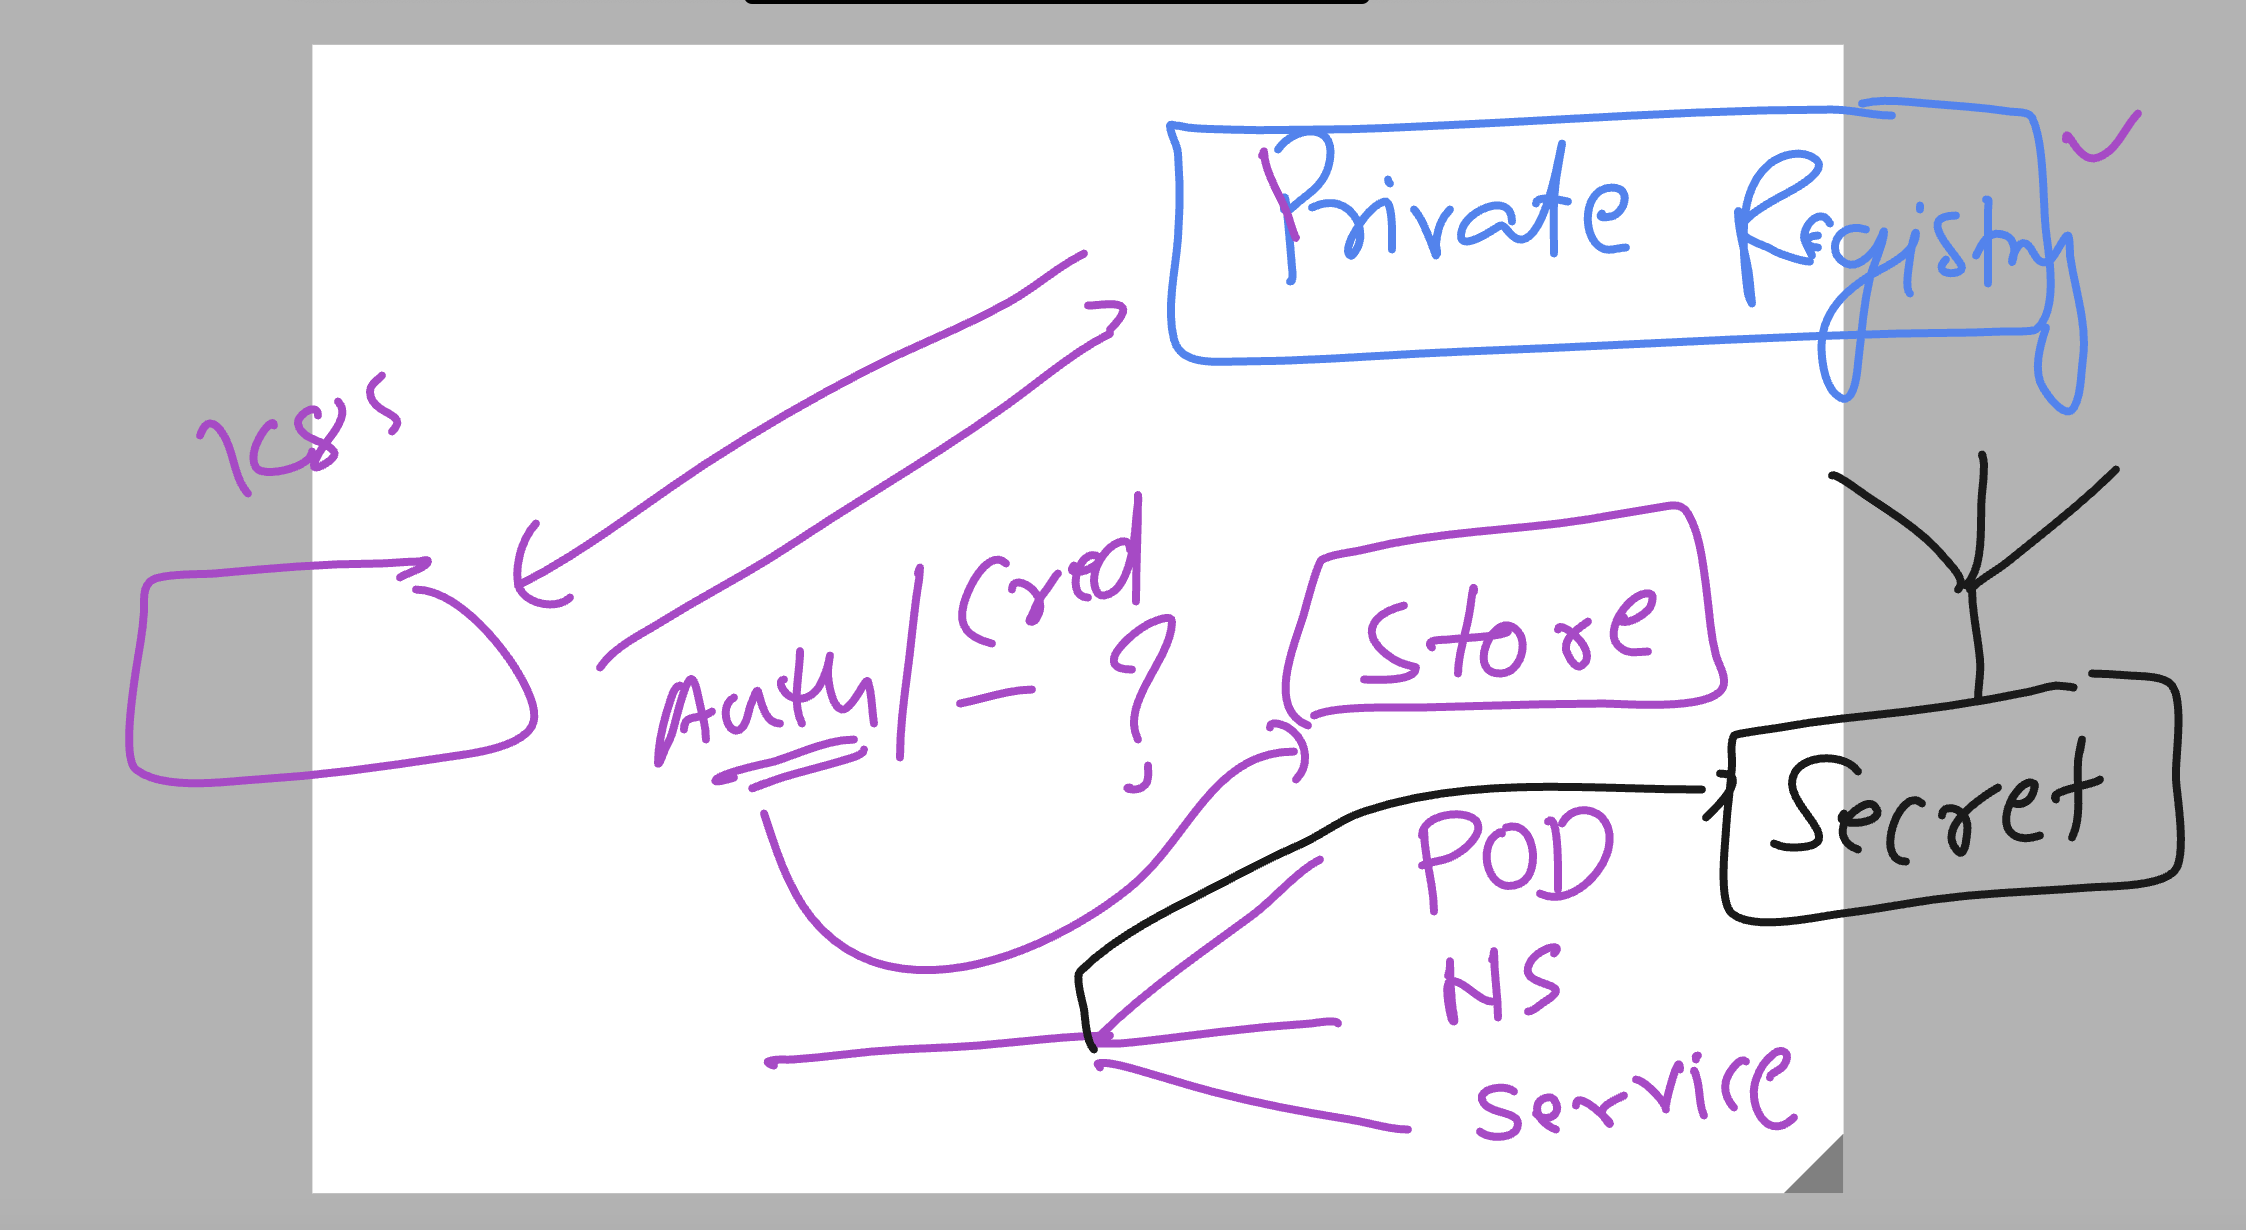 Private Registry
k8s
Auth / Cred
- ?
Store
Secret
POD
NS
Service